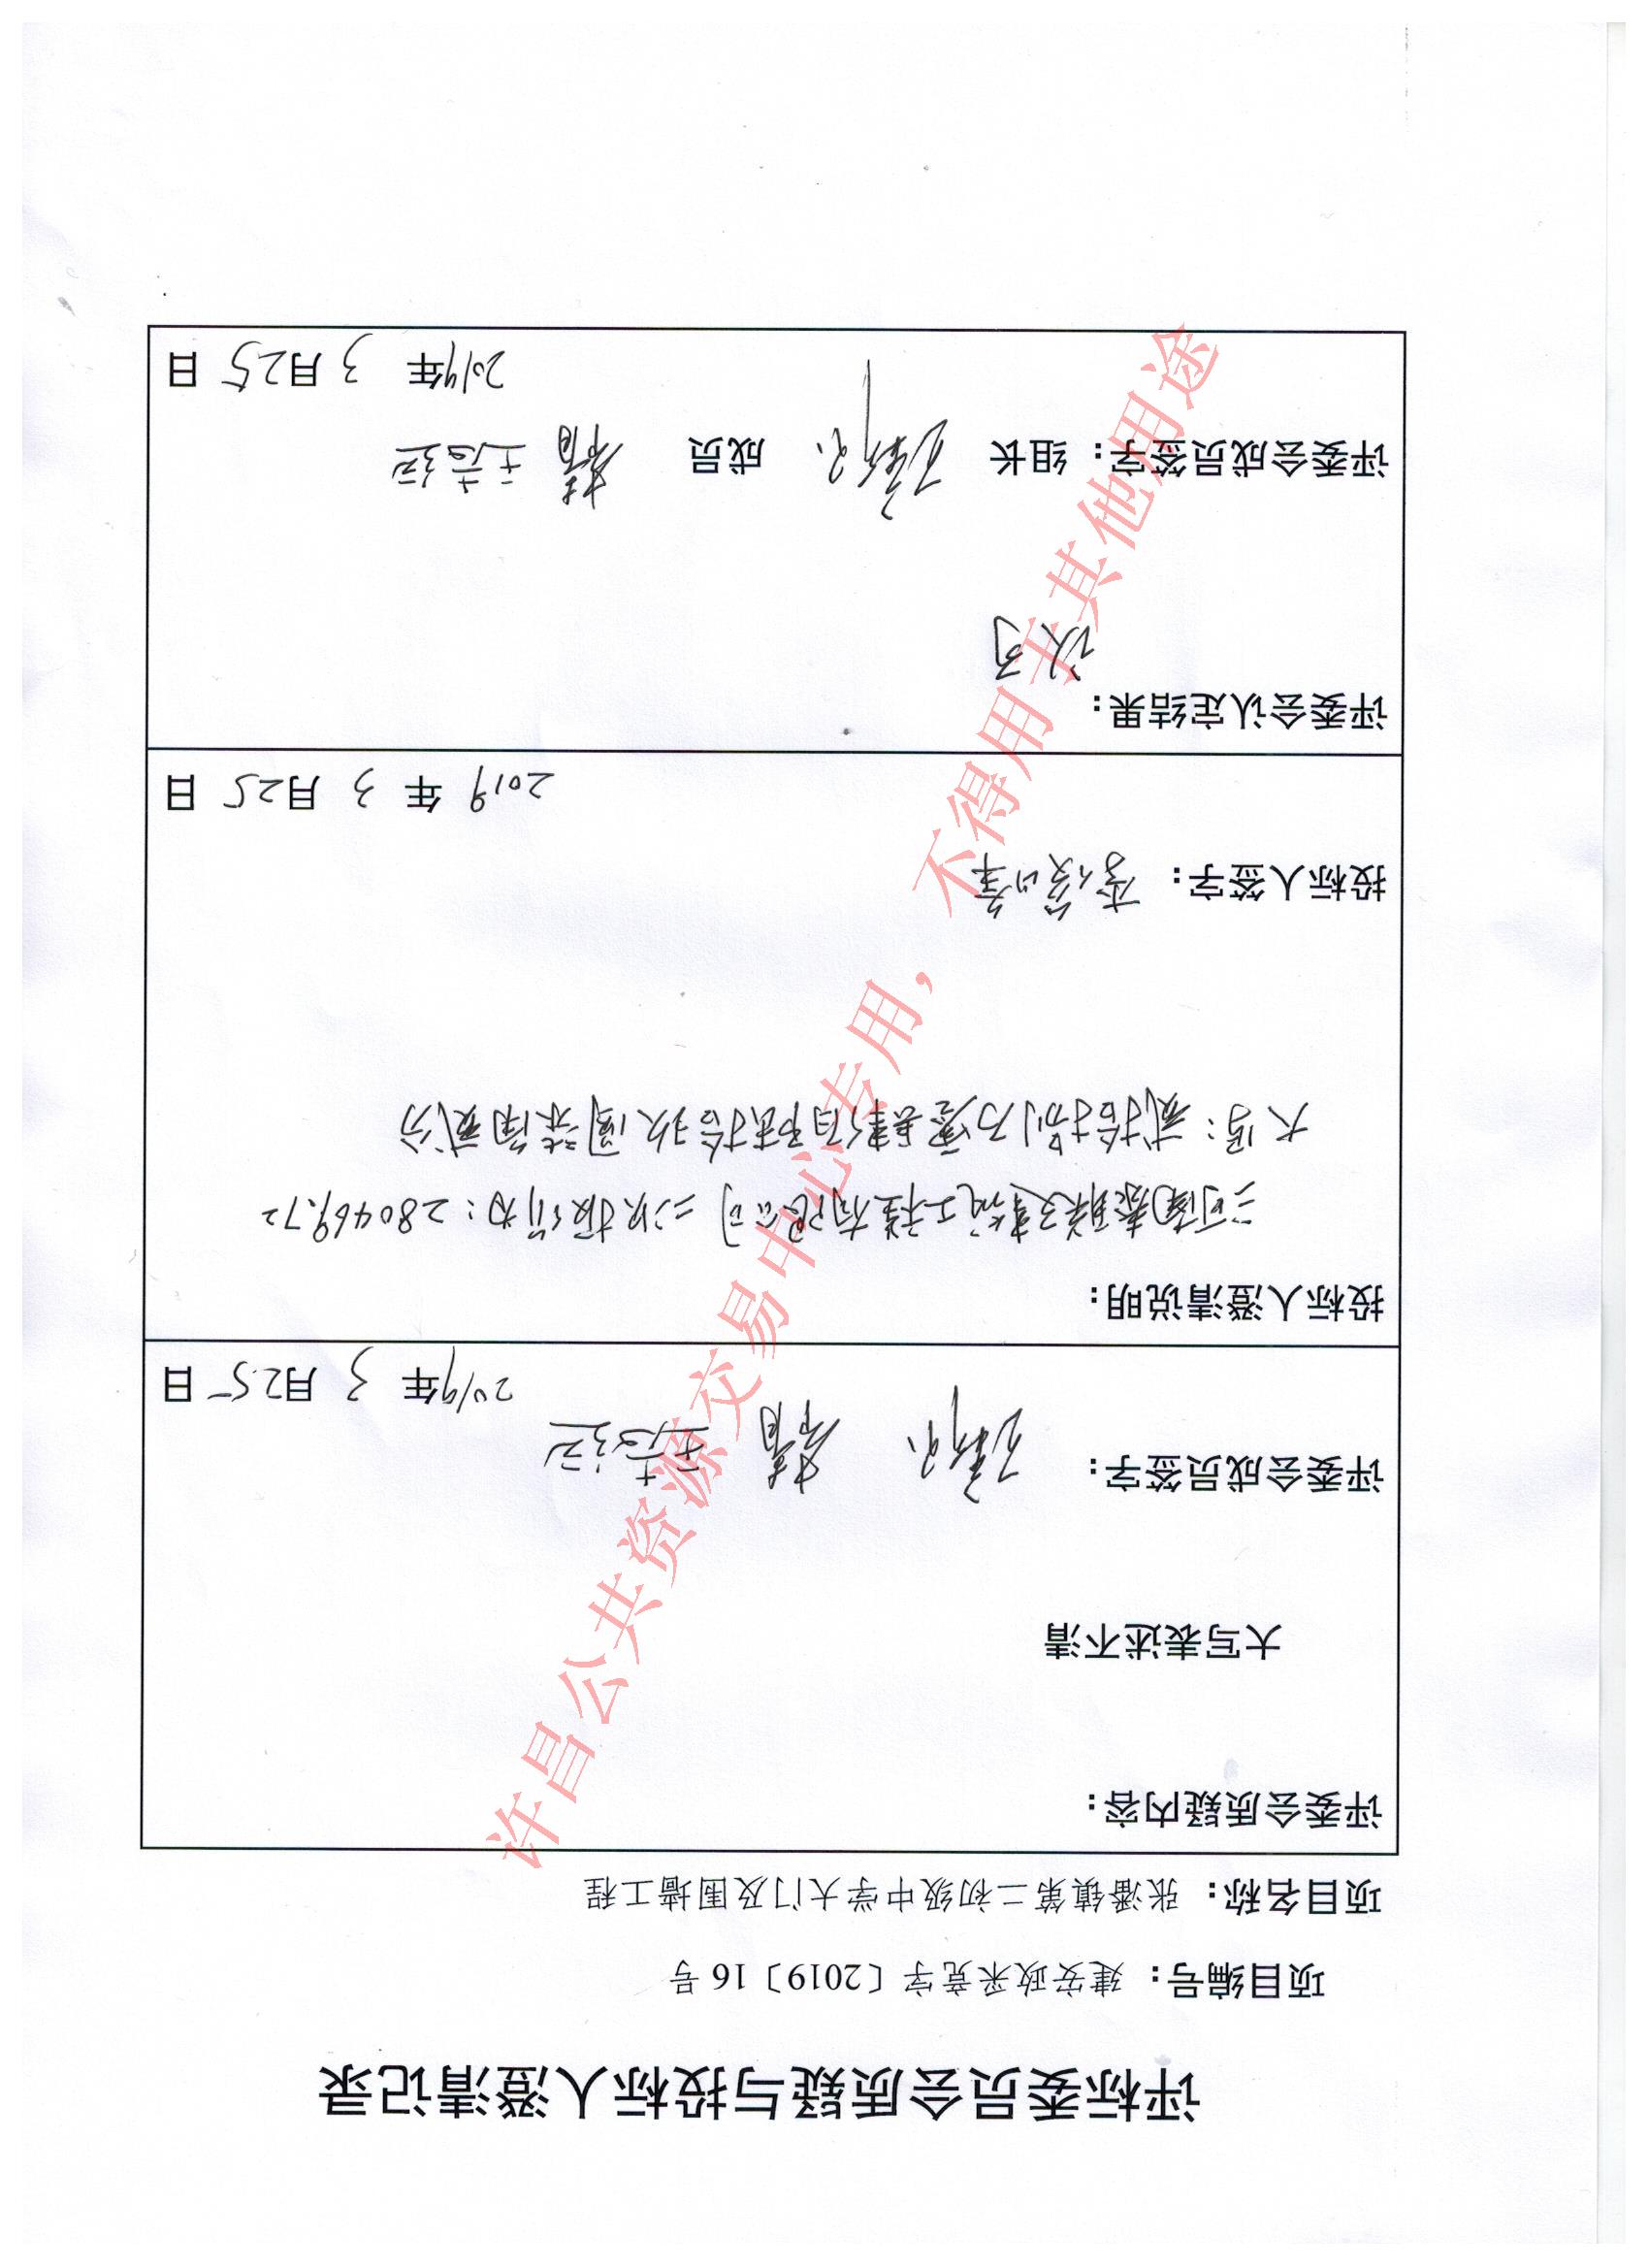 评标委员会质疑与投标人澄清记录
项目编号：建安政采竞字〔2019〕16号
项目名称：张潘镇第二初级中学大门及围墙工程
评委会质疑内容：
大写表述不清
评委会成员签字：
2019年 3 月25 日
投标人澄清说明：
河南泰联建筑工程有限公司 二次报价为：280469.72
大写：贰拾捌万零肆佰陆拾玖圆柒角贰分
投标人签字：
2019 年 3 月25 日
评委会认定结果：
认可
评委会成员签字：组长 成员
2019年 3 月25 日
许昌公共资源交易中心专用，不得用于其他用途